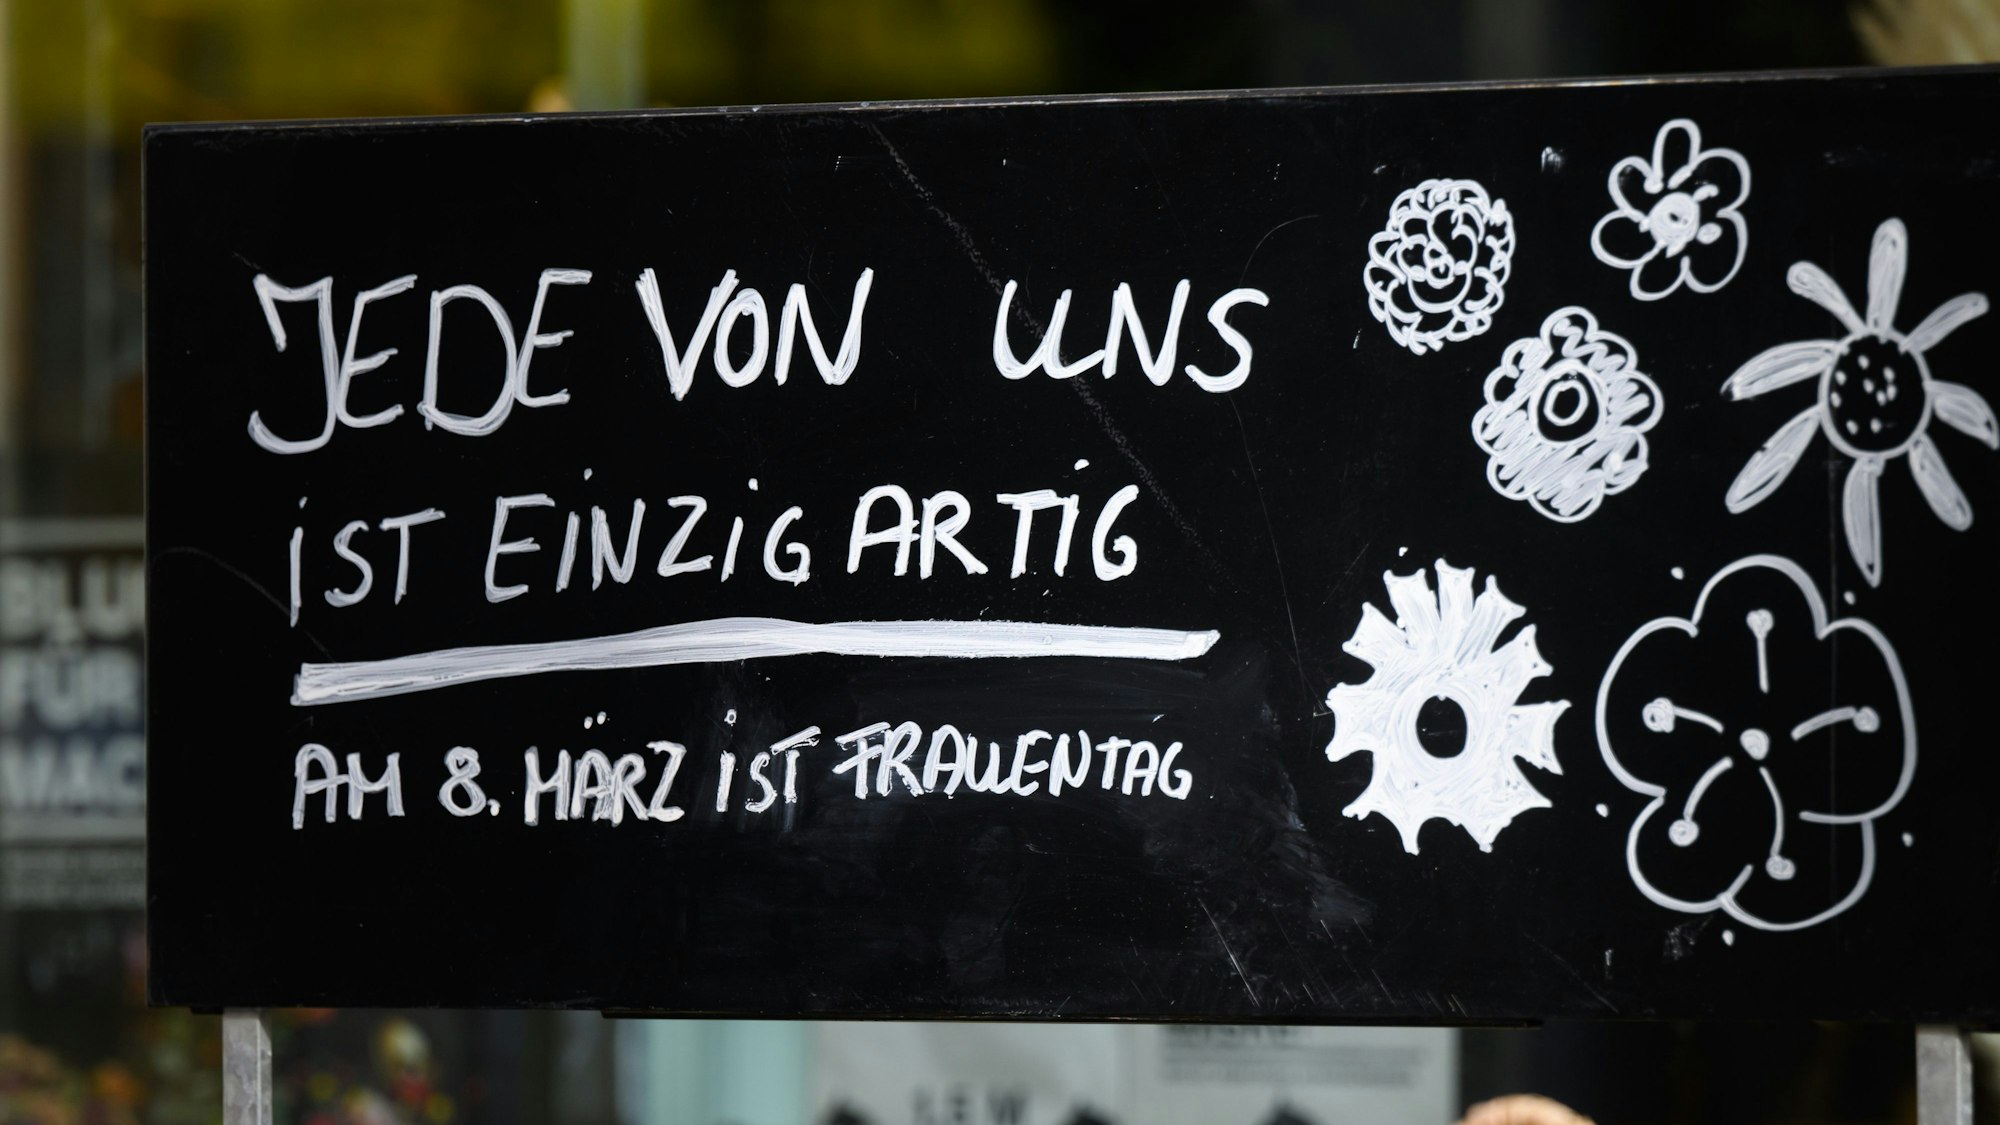 JEDE VON UNS
iST EiNZiGARTiG
AM 8. MÄRZ iST FRAUENTAG
FÜR